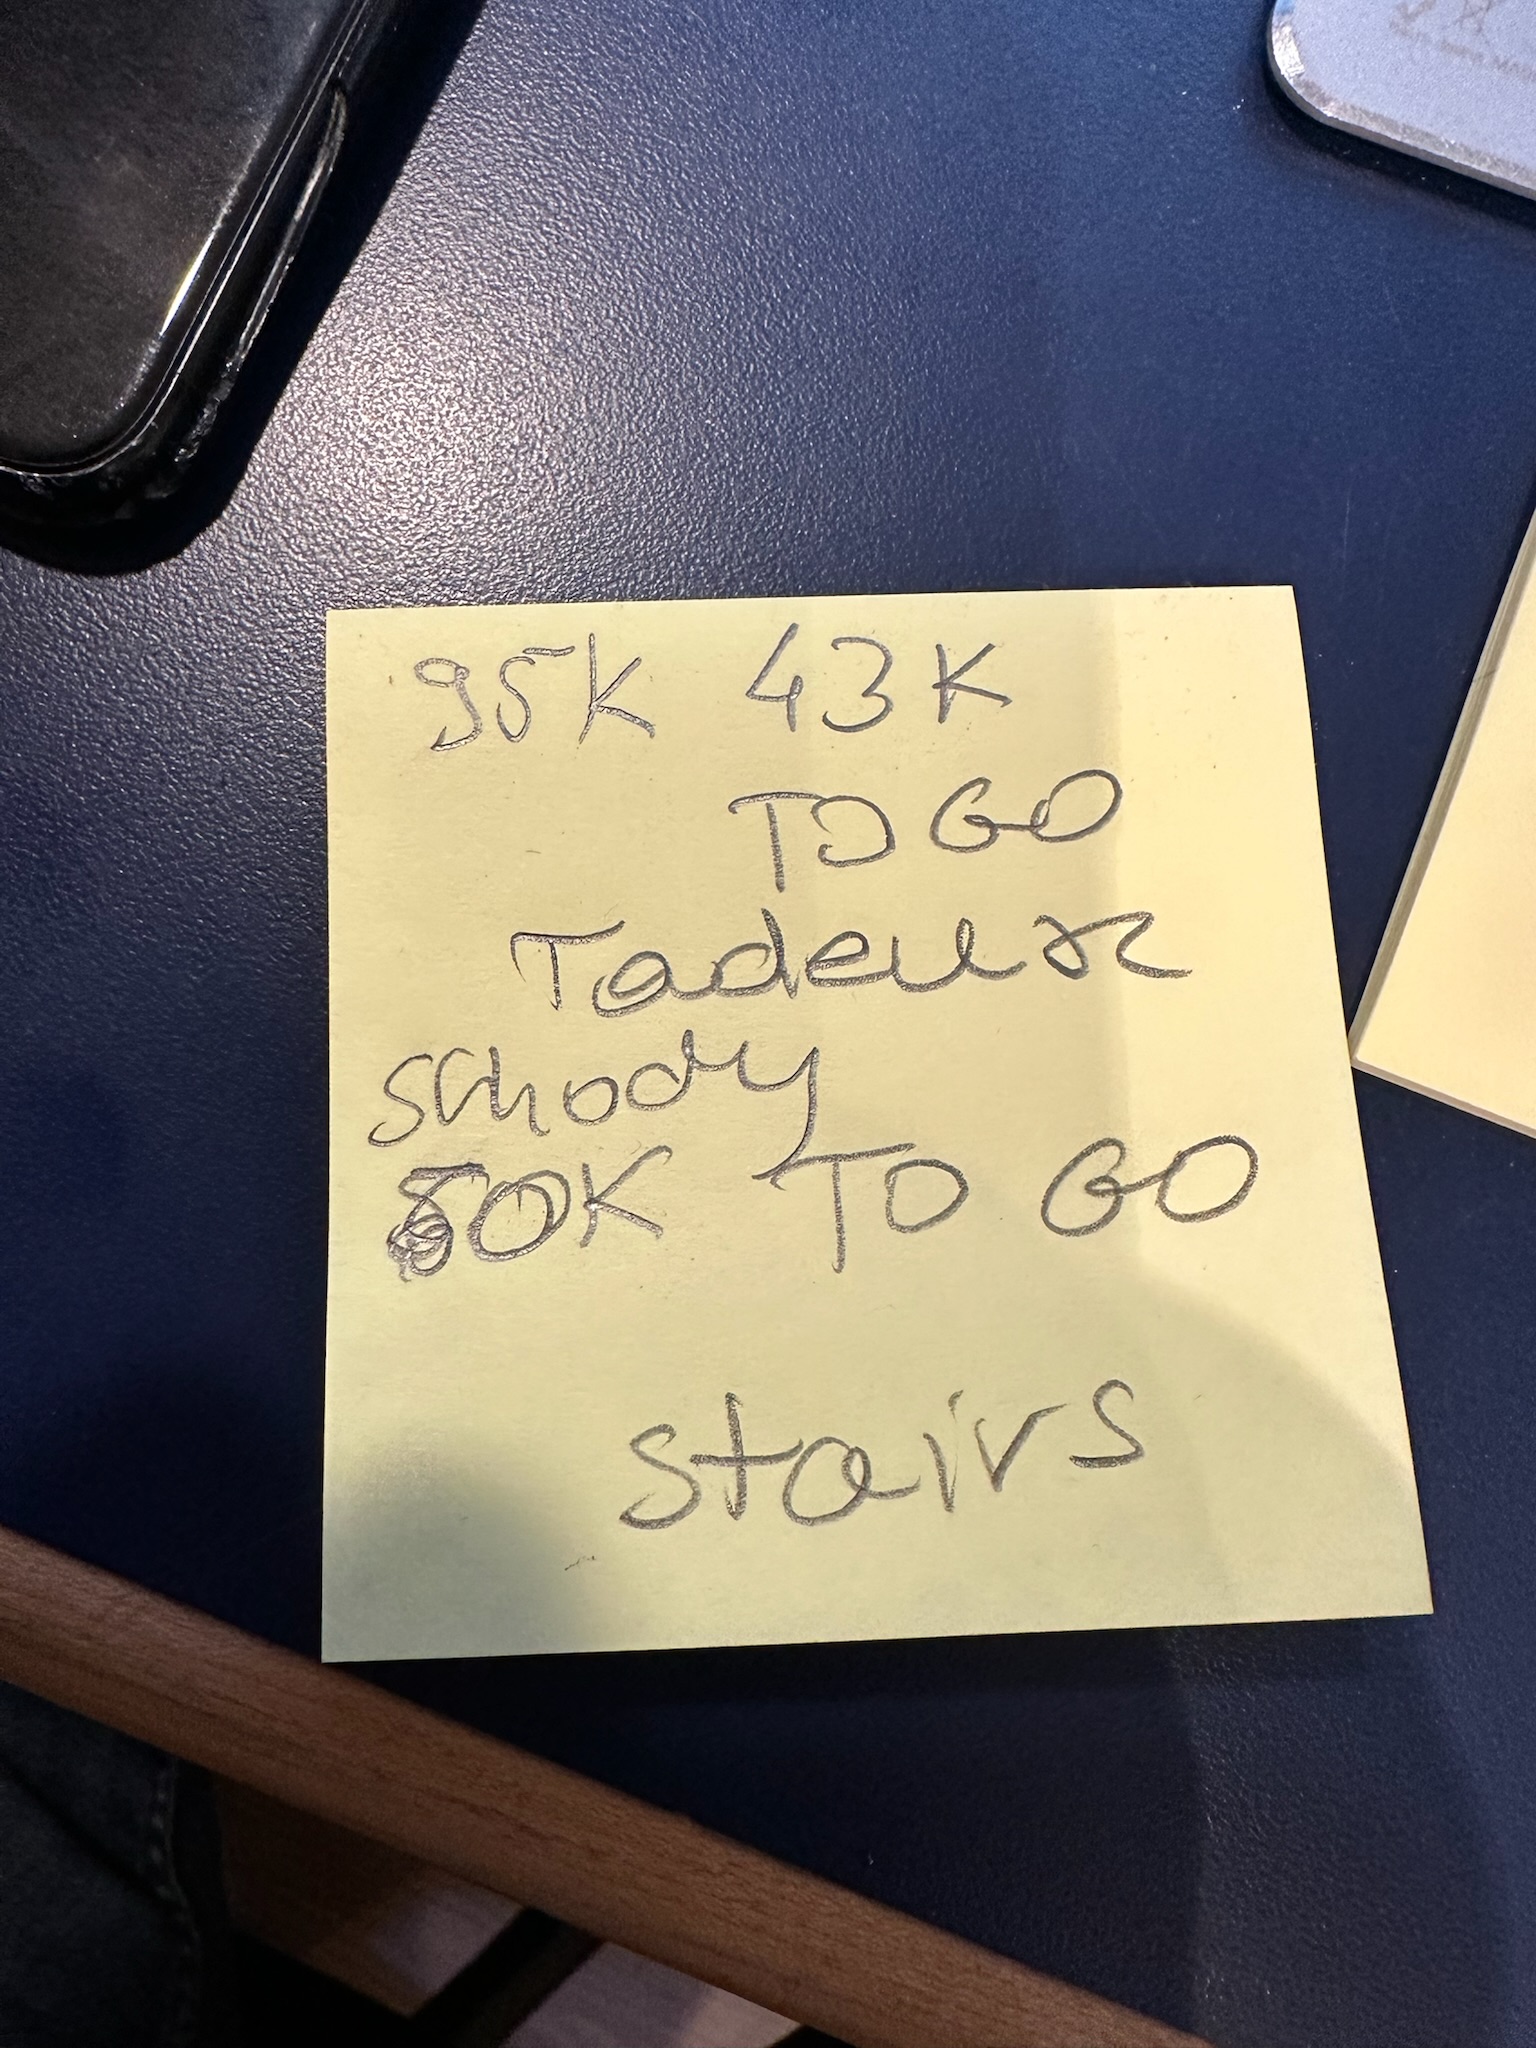 95K 43K
TO GO
Tadeusz
schody
50K TO GO
stairs